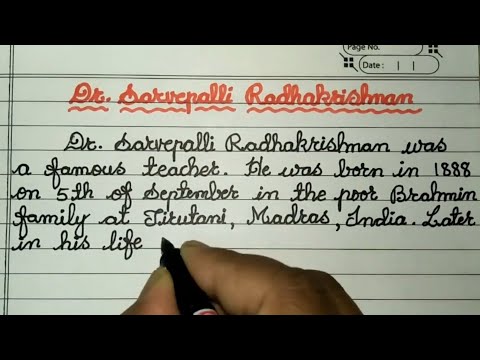 Page No.
Date :
Dr. Sarvepalli Radhakrishnan
Dr. Sarvepalli Radhakrishnan was
a famous teacher. He was born in 1888
on 5th of September in the poor Brahmin
family at Tirutani, Madras, India. Later
in his life